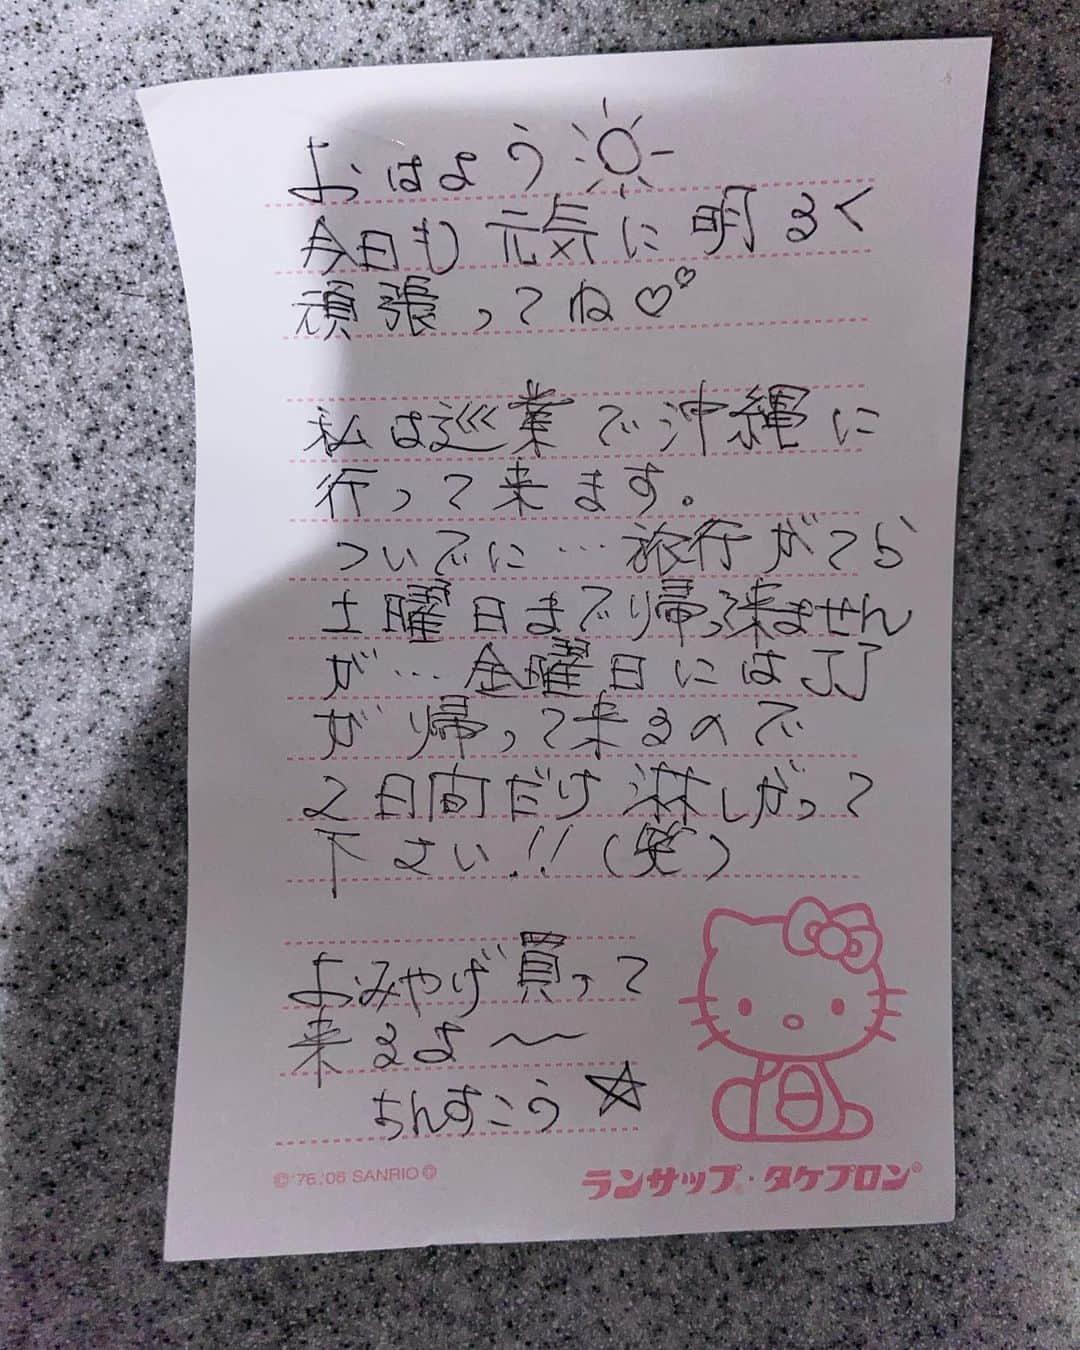 おはよう
今日も元気に明るく
頑張ってね♡♡
私は巡業で沖縄に
行って来ます。
ついでに…旅行がてら
土曜日まで帰って来ません
が…金曜日にはJJ
が帰って来るので
2日間だけ淋しがって
下さい!!(笑)
おみやげ買って
来るよ〜
ちんすこう☆
©'76,'06 SANRIO©
ランサップ®・タケプロン®